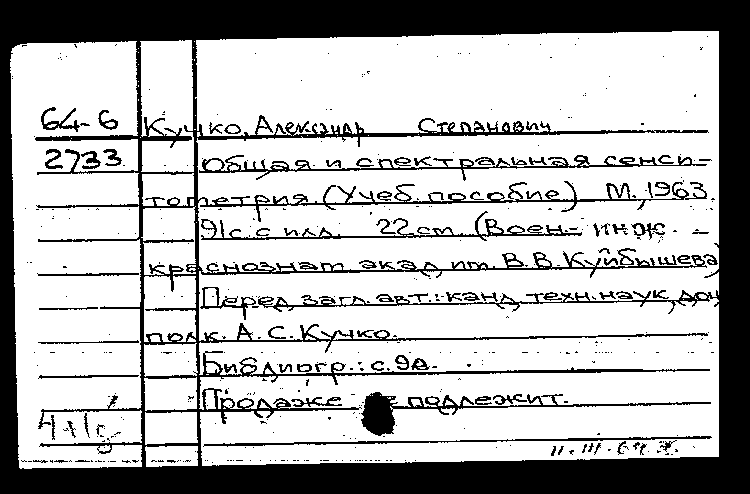 64-6 Кучко, Александр Степанович
2733 Общая и спектральная сенси-
тометрия. (Учеб. пособие) М., 1963.
91с. с илл. 22см. (Воен.- инж.
краснознам. акад. им. В.В. Куйбышева)
Перед загл. авт.: канд. техн. наук, доц.
полк. А.С. Кучко.
Библиогр.: с. 90.
Продаже не подлежит.